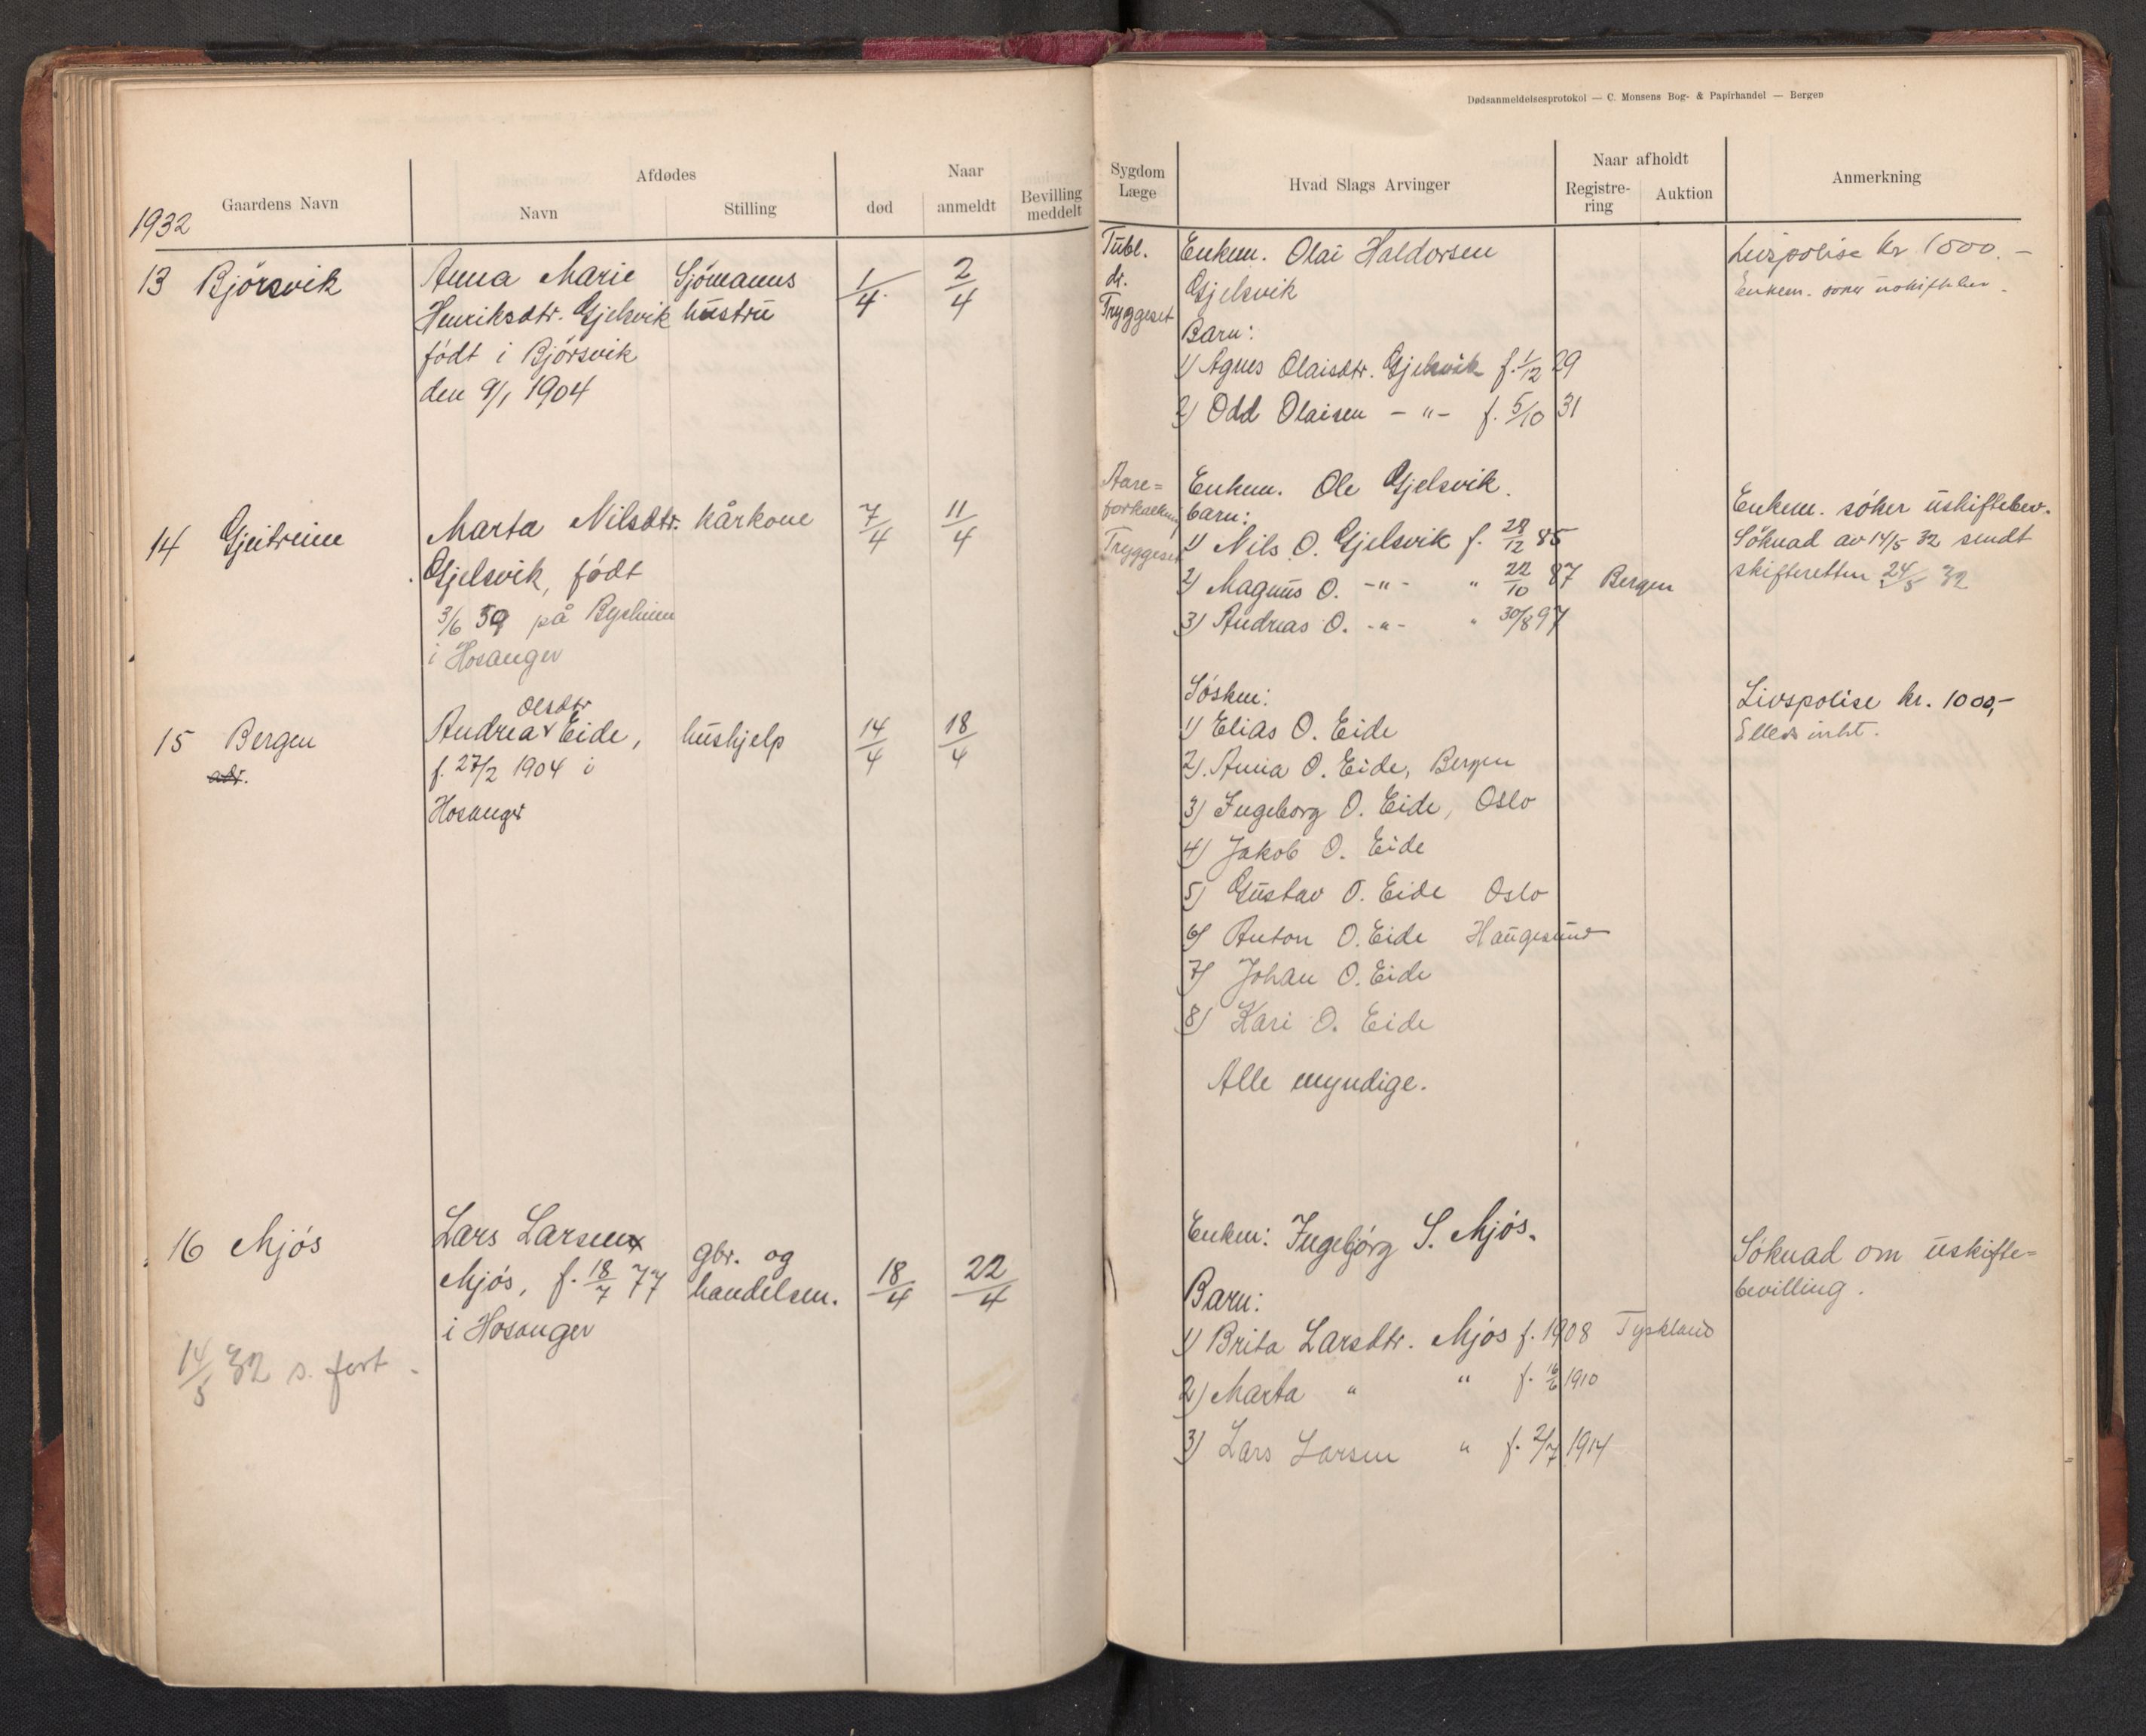 Dødsanmeldelsesprotokol — C. Monsens Bog- & Papirhandel — Bergen
1932
Gaardens Navn
Afdødes
Navn
Stilling
Naar
død
anmeldt
Bevilling meddelt
Sygdom Læge
Hvad Slags Arvinger
Naar afholdt
Registrering
Auktion
Anmerkning
13 Bjørsvik
Anna Marie
Henriksdtr. Gjelsvik
født i Bjørsvik
den 9/1 1904
Sjömanns
hustru
1/4
2/4
Tubl.
dr.
Tryggeset
Enkem. Olai Haldorsen
Gjelsvik
Barn:
1) Agnes Olaisdtr. Gjelsvik f. 1/12 29
2) Odd Olaisen — " — f. 5/10 31
Livspolise kr 1000.—
Enkem. søker uskiftebev.
14
Marta Nilsdtr.
Gjelsvik, født
3/6 59 på
i Hosanger
kårkone
7/4
11/4
Aare=
forkalkning
Tryggeset
Enkem. Ole Gjelsvik.
barn:
1) Nils O. Gjelsvik f. 28/12 85
2) Magnus O. -"- " 22/10 87 Bergen
3) Andreas O. -"- " 30/8 97
Enkem. söker uskiftebev.
Söknad av 14/5 32 sendt
skifteretten 24/5 32
15 Bergen
adr.
Olsdtr
Andrea Eide,
f. 27/2 1904 i
Hosanger
hushjelp
14/4
18/4
Søsken:
1) Elias O. Eide
2). Anna O. Eide, Bergen
3) Ingeborg O. Eide, Oslo
4) Jakob O. Eide
5) Gustav O. Eide Oslo
6) Anton O. Eide Haugesund
7) Johan O. Eide
8) Kari O. Eide
Alle myndige.
Livspolise kr. 1000,-
Ellers intet.
16 Mjøs
14/5 32 s. fort.
Lars Larsen
Mjøs, f. 18/7 77
i Hosanger
gbr. og
handelsm.
18/4
22/4
Enke: Ingebjørg S. Mjøs.
Barn:
1) Brita Larsdtr. Mjøs f. 1908 Tyskland
2) Marta " " f. 1910
3) Lars Larsen " f. 2/7 1914
Söknad om uskifte=
bevilling.